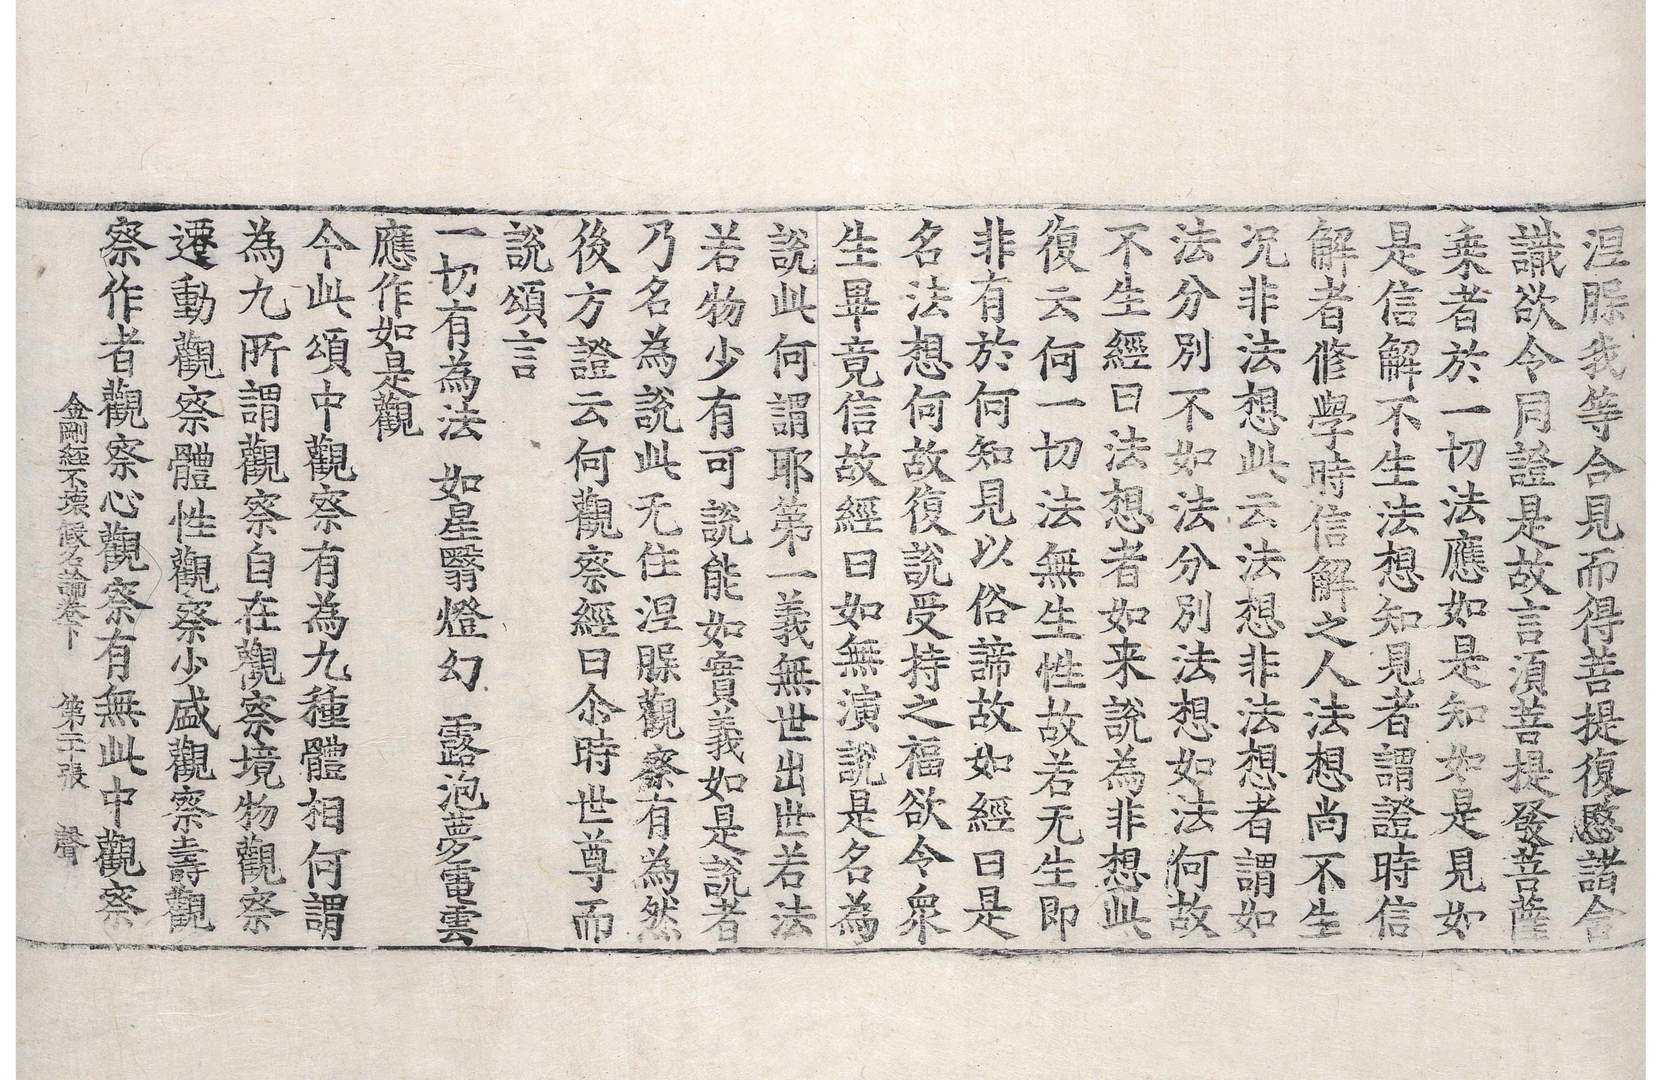 涅槃我等合見而得菩提復愍諸含
識欲令同證是故言須菩提發菩薩
乗者於一切法應如是知如是見如
是信解不生法想知見者謂證時信
解者修學時信解之人法想尚不生
况非法想此云法想非法想者謂如
法分別不如法分別法想如法何故
不生經曰法想者如来說為非想此
復云何一切法無生性故若无生即
非有於何知見以俗諦故如經曰是
名法想何故復說受持之福欲令衆
生畢竟信故經曰如無演說是名為
說此何謂耶第一義無世出世若法
若物少有可說能如實義如是說者
乃名為說此无住涅槃觀察有為然
後方證云何觀察經曰尒時世尊而
說頌言
一切有為法 如星翳燈幻 露泡夢電雲
應作如是觀
今此頌中觀察有為九種體相何謂
為九所謂觀察自在觀察境物觀察
遷動觀察體性觀察少盛觀察壽觀
察作者觀察心觀察有無此中觀察
金剛經不壞假名論卷下 第二十張 聲